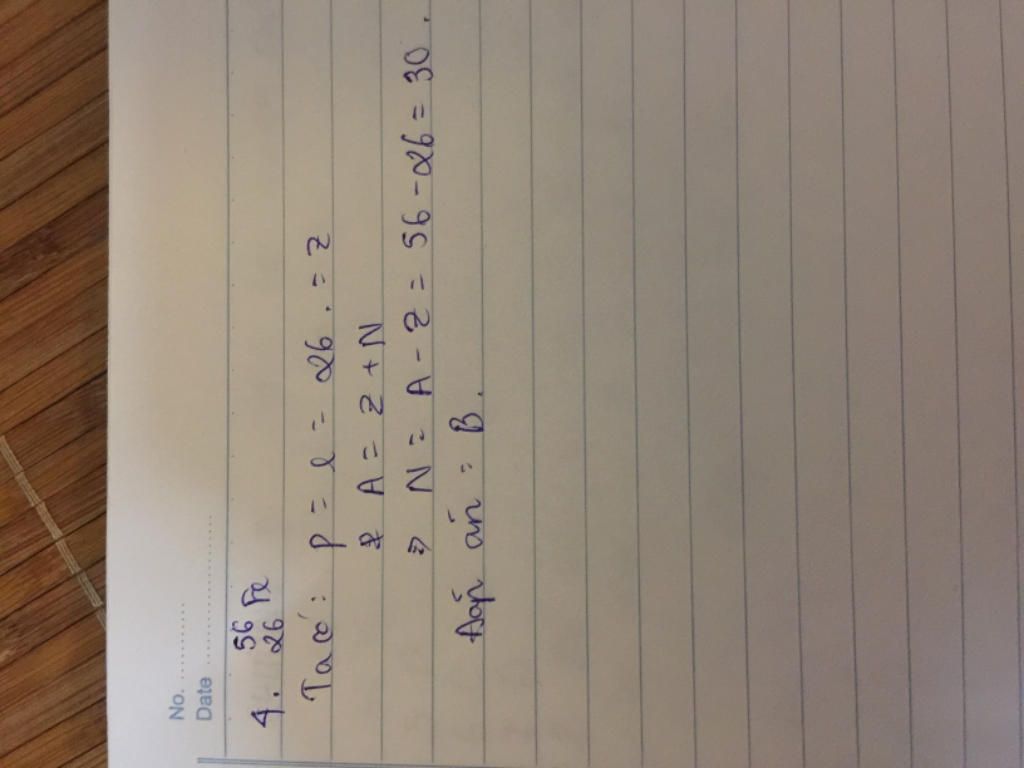 No. ..............
Date ........................
4. ⁵⁶₂₆Fe
Ta có: p = e = 26. = Z
& A = Z + N
⇒ N = A - Z = 56 - 26 = 30.
Đáp án: B.